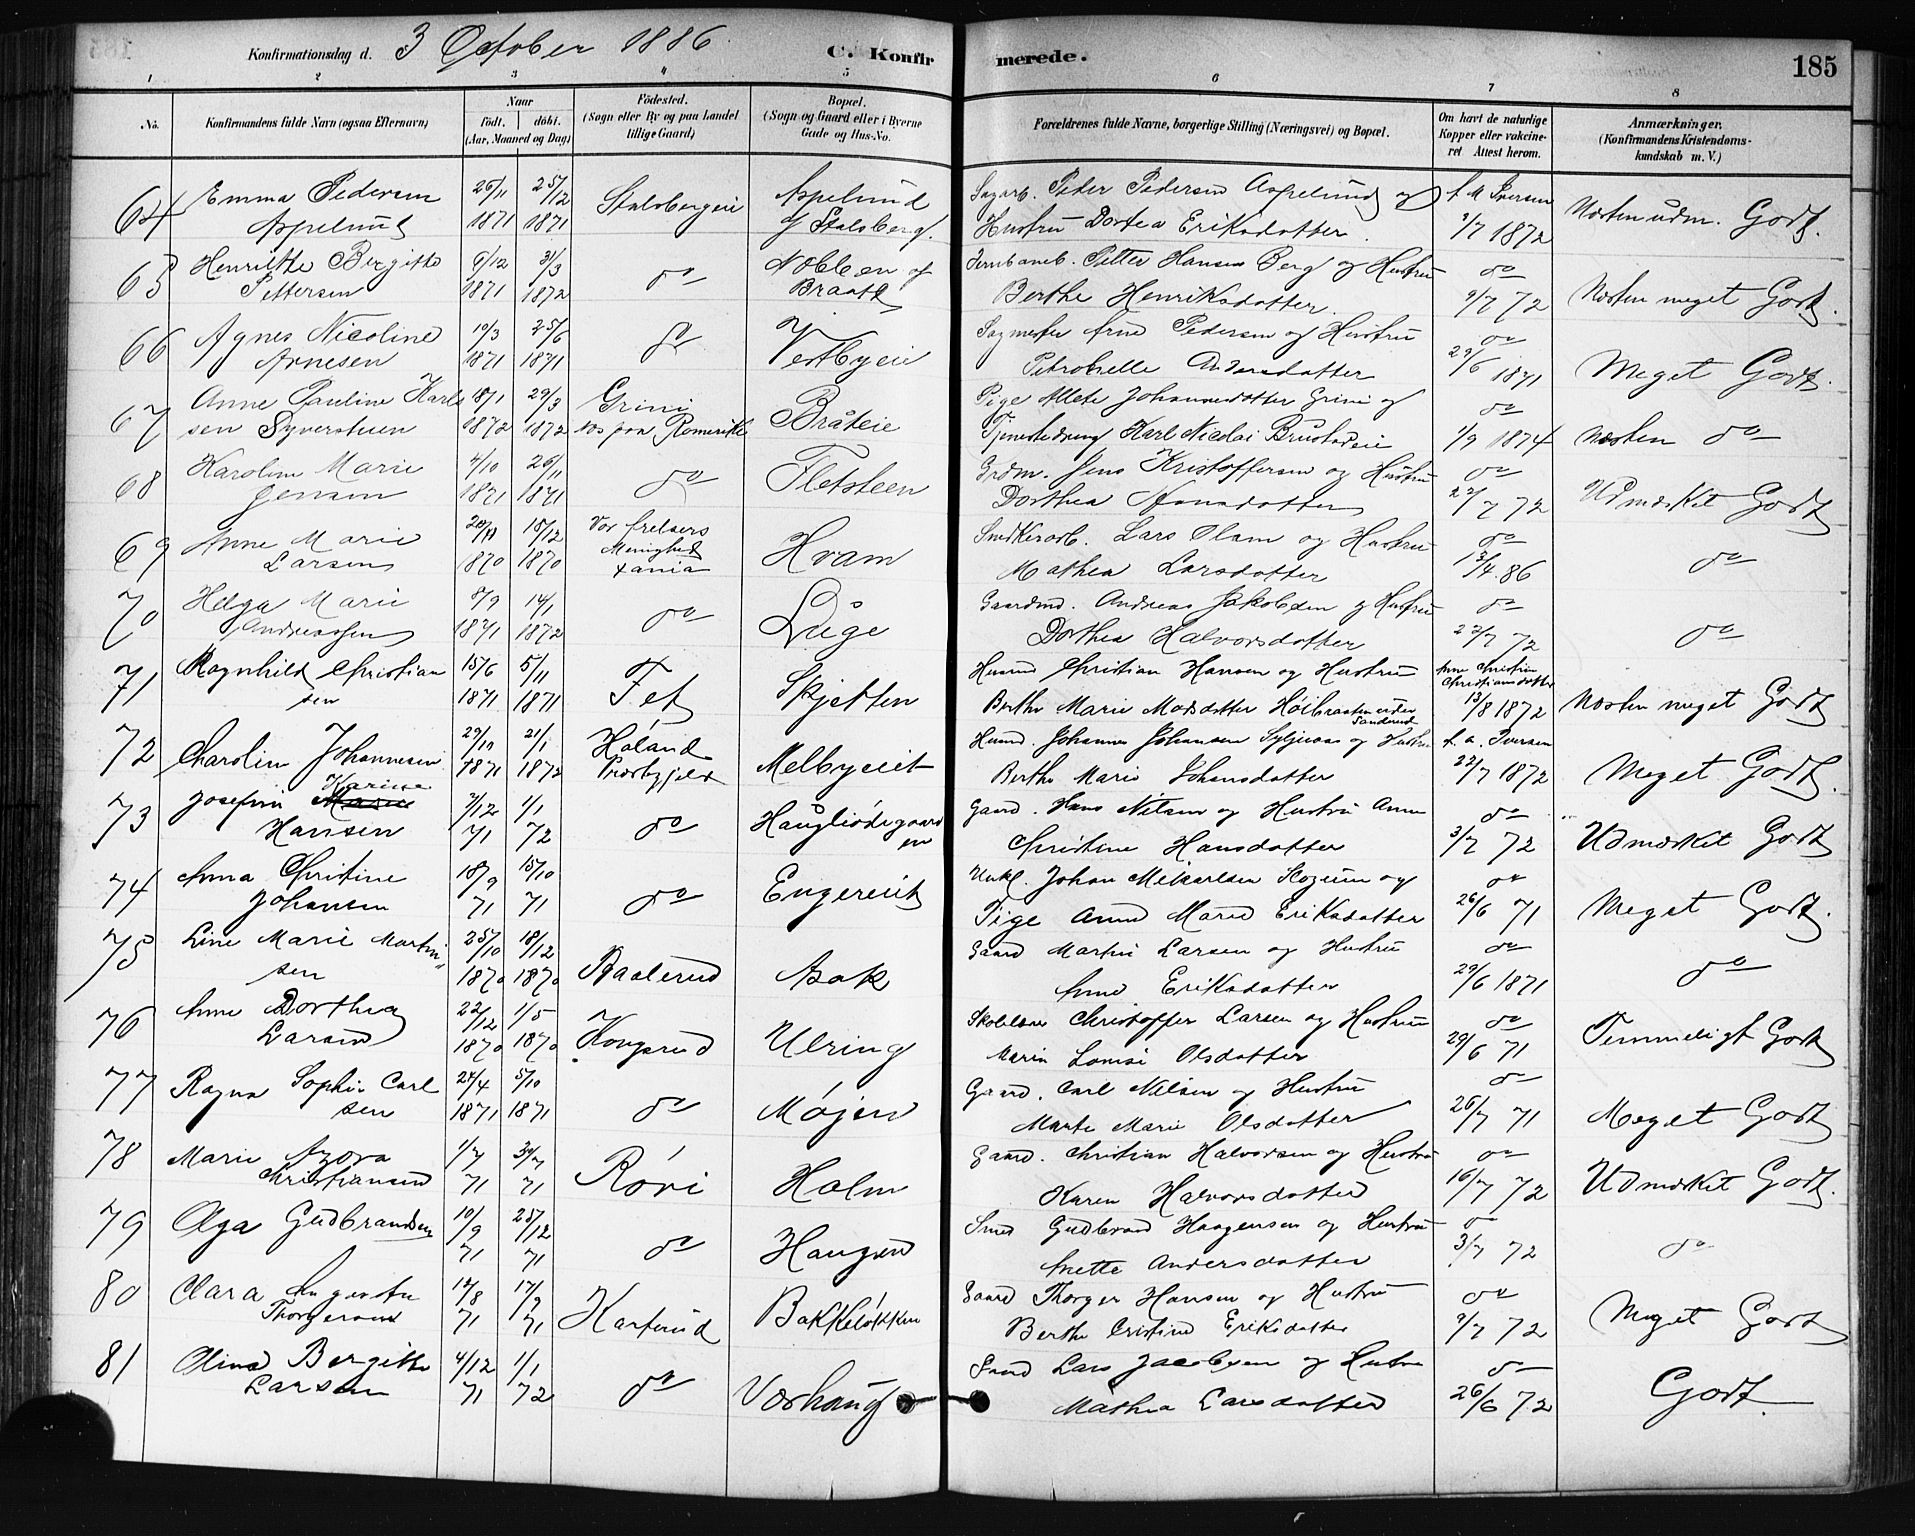 Konfirmationsdag d. 3 October 1886 C. Konfir merede. 185
1 2 3 4 5 6 7 8
No. Konfirmandens fulde Navn (ogsaa Efternavn) Naar födt. döbt. (Aar, Maaned og Dag) Födested. (Sogn eller By og paa Landet tillige Gaard) Bopæl. (Sogn og Gaard eller i Byerne Gade og Hus-No. Forældrenes fulde Navne, borgerlige Stilling (Næringsvei) og Bopæl. Om havt de naturlige Kopper eller vakcineret Attest herom. Anmærkninger. (Konfirmandens Kristendomskundskab m. V.)
64 Emma Pedersen 26/11 25/12 Stalsbergeie Appelund Sagarb. Peder Pedersen Appelund og Iversen Næsten udm. Godt.
Appelund 1871 1871 af Stalsberg. Hustru Dortea Eriksdatter. 9/7 1872
65 Henriette Birgitte 9/12 31/3 do Nobleen af Jernbaneb. Petter Hansen Berg og Hustru do Næsten meget Godt.
Pettersen 1871 1872 Braate Berthe Henriksdatter. 9/7 72
66 Agnes Nicoline 10/3 25/6 do Vestbyeie Sagmester Arne Pedersen og Hustru do Meget Godt.
Arnesen 1871 1871 Petronelle Andersdatter 29/6 1871
67 Anne Pauline Karl 18/1 29/3 Grini Bråteie Pige Johannesdatter Grini og do Næsten do
sen Syverstuen 1872 1872 Næs paa Romerike Tjenestedreng Karl Nicolai 1/9 1874
68 Karoline Marie 4/10 26/11 do Fletsteen Grdm. Jens Kristoffersen og Hustru do Udmærket Godt
Jensen 1871 1871 Dorthea Hansdatter 22/7 72
69 Anne Marie 15/12 Vor Frelsers Hvam Snedkerarb. Lars Olsen og Hustru do do
Larsen 1870 1870 Menighed Xania Mathea Larsdatter 13/4 86
70 Helga Marie 8/9 14/1 do Gaardmd. Andreas Jakobsen og Hustru do do
Andreassen 1871 1872 Dorthea Halvorsdatter 22/7 72
71 Ragnhild Christian 15/6 5/11 Fet Skjetten Husmd Christian Hansen og Hustru Anne Christine Christiansdatter Næsten meget Godt
sen 1871 1871 Berthe Marie Madsdatter Höibraaten under 13/8 1872
72 Karoline Johannesen 29/10 21/1 Høland Melbyeiet Husmd. Johannes Johansen og Hustru Iversen Meget Godt.
1871 1872 Præstegjeld Berthe Marie Johansdatter 22/7 1872
73 Josefine Karine 7/12 1/1 do Haugliødegaard Gaard. Hans Nilsen og Hustru Anne do Udmærket Godt
Hansen 71 72 en Christine Hansdatter 3/7 72
74 Anna Christine 18/9 15/10 do Engereiet Unkl. Johan Mikalsen og do Meget Godt.
Johansen 71 71 Pige Anne Marie Eriksdatter 26/6 71
75 Line Marie Martin 25/10 18/12 Baalerud Asak Gaard Martin Larsen og Hustru do do
sen 1870 1870 Anne Eriksdatter 29/6 1871
76 Anne Dorthea 22/12 1/5 Kongsrud Ulring Skolelærer Christoffer Larsen og Hustru do Temmeligt Godt
Larsen 1870 1870 Marin Lovise Olsdatter 29/6 71
77 Ragna Sophie Carl 24/4 5/10 do Møjen Gaard. Carl Nilsen og Hustru do Meget Godt
sen 1871 1871 Marte Marie Olsdatter 26/7 71
78 Marie Azora 1/7 30/7 Røri Holm Gaard. Christian Halvorsen og Hustru do Udmærket Godt.
Christiansen 71 71 Karen Halvorsdatter 16/7 72
79 Olga Gudbrandsen 10/9 25/12 do Haugen Smed Gudbrand Haagensen og Hustru do do
71 71 Anette Andersdatter 3/7 72
80 Clara Augusta 12/8 17/9 Karterud Bakkeløkken Gaard Thorger Hansen og Hustru do Meget Godt
Thorgersen 71 71 Berthe Cristine Eriksdatter 9/7 72
81 Oline Bergitte 4/12 1/1 do Vorhaug Smd Lars Jacobsen og Hustru do Godt.
Larsen 71 72 Mathea Larsdatter 26/6 72